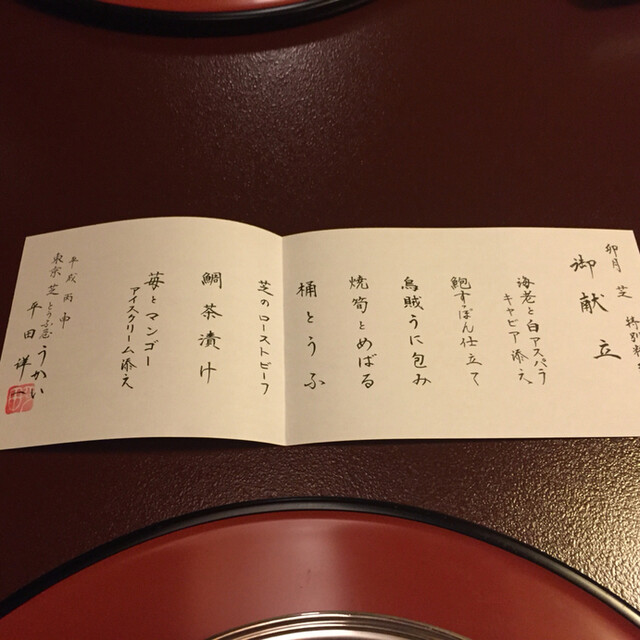 卯月 芝 特別
御献立
海老と白アスパラ
キャビア添え
鮑すっぽん仕立て
烏賊うに包み
焼筍とめばる
桶とうふ
芝のローストビーフ
鯛茶漬け
苺とマンゴー
アイスクリーム添え
平成丙申
東京 芝 とうふ屋うかい
平田 祥